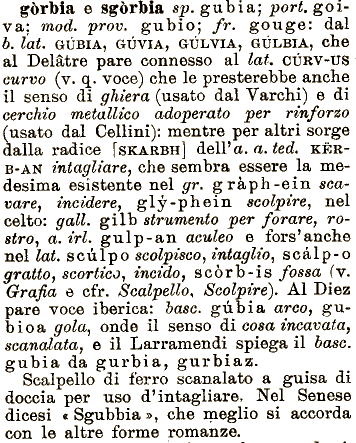 gòrbia e sgòrbia sp. gubia; port. goi-
va; mod. prov. gubio; fr. gouge: dal
b. lat. GÚBIA, GÚVIA, GÚLVIA, GÚLBIA, che
al Delâtre pare connesso al lat. CÚRV-US
curvo (v. q. voce) che le presterebbe anche
il senso di ghiera (usato dal Varchi) e di
cerchio metallico adoperato per rinforzo
(usato dal Cellini): mentre per altri sorge
dalla radice [SKARBH] dell'a. a. ted. KËR-
B-AN intagliare, che sembra essere la me-
desima esistente nel gr. gràph-ein sca-
vare, incidere, glý-phein scolpire, nel
celto: gall. gilb strumento per forare, ro-
stro, a. irl. gulp-an aculeo e fors'anche
nel lat. scúlpo scolpisco, intaglio, scálp-o
gratto, scortico, incido, scòrb-is fossa (v.
Grafia e cfr. Scalpello, Scolpire). Al Diez
pare voce iberica: basc. gúbia arco, gu-
bioa gola, onde il senso di cosa incavata,
scanalata, e il Larramendi spiega il basc.
gubia da gurbia, gurbiaz.
Scalpello di ferro scanalato a guisa di
doccia per uso d'intagliare. Nel Senese
dicesi « Sgubbia », che meglio si accorda
con le altre forme romanze.